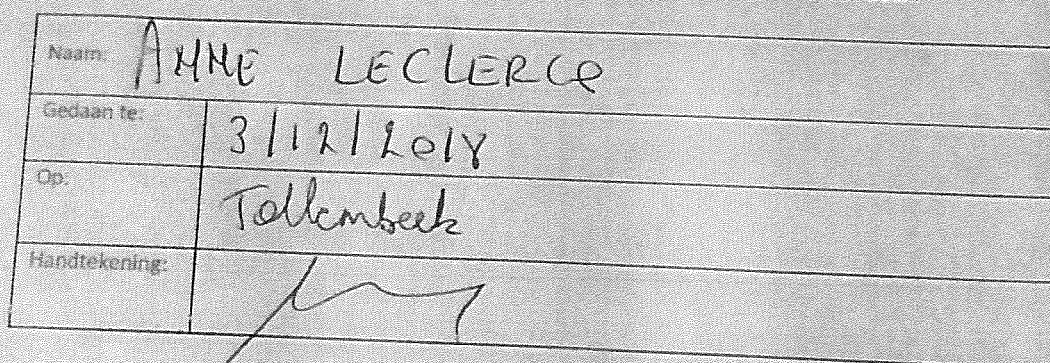 Naam: ANNE LECLERCQ
Gedaan te: 3/12/2018
Op: Tollembeek
Handtekening: